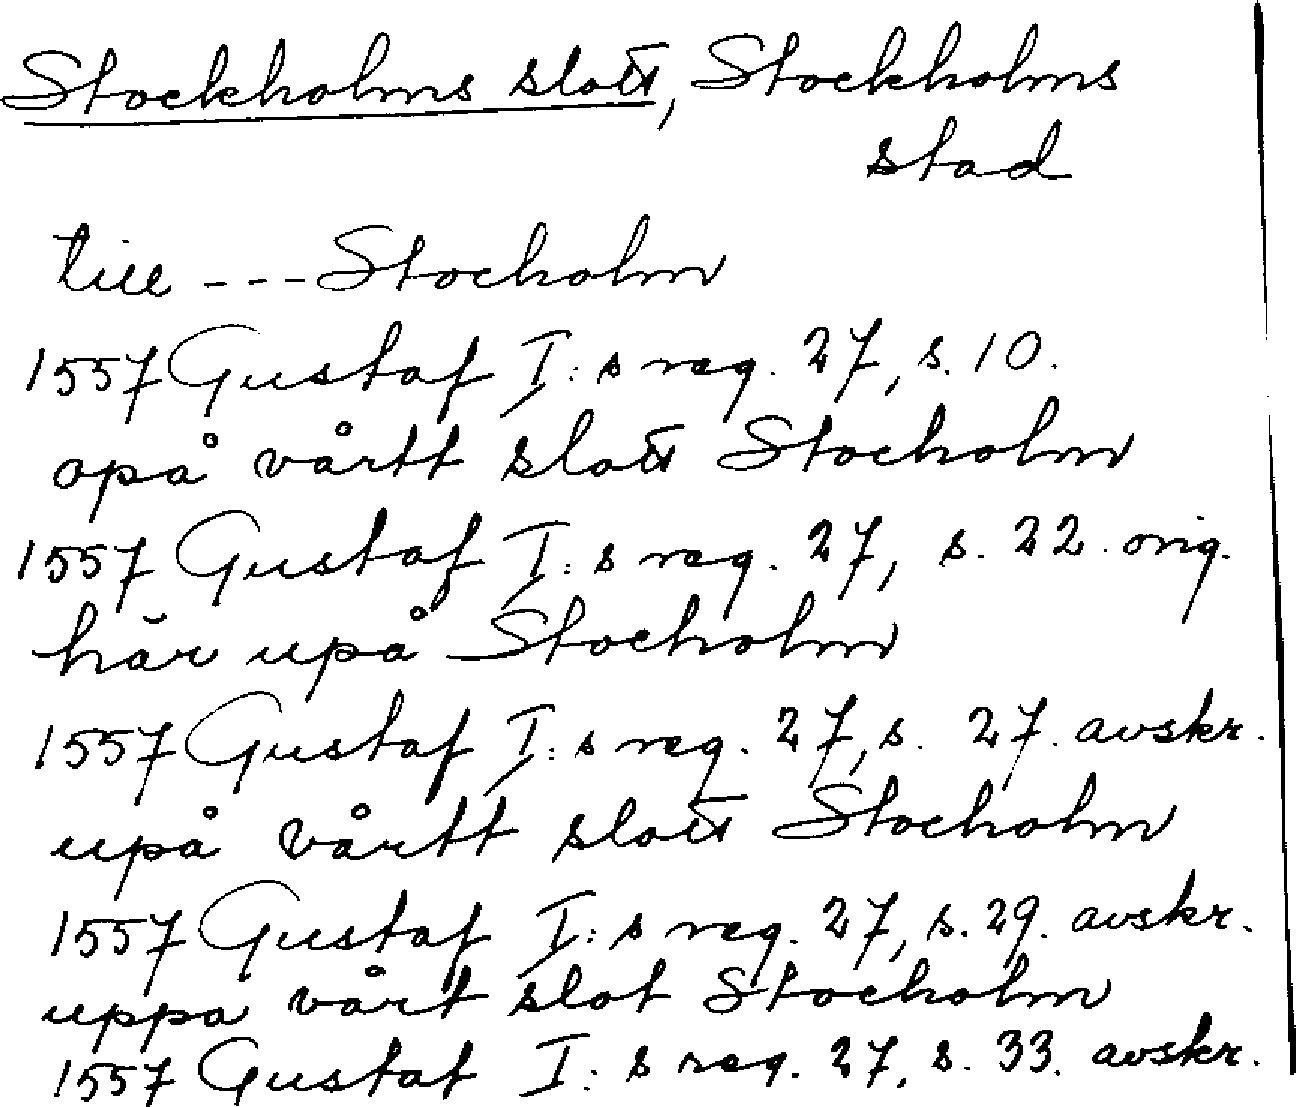 Stockholms slott, Stockholms
stad
till --- Stocholm
1557 Gustaf I:s reg. 27, s. 10.
opå vårtt slott Stocholm
1557 Gustaf I:s reg. 27, s. 22. orig.
här upå Stocholm
1557 Gustaf I:s reg. 27, s. 27. avskr.
upå vårtt slott Stocholm
1557 Gustaf I:s reg. 27, s. 29. avskr.
uppa vårt slot Stocholm
1557 Gustaf I:s reg. 27, s. 33. avskr.